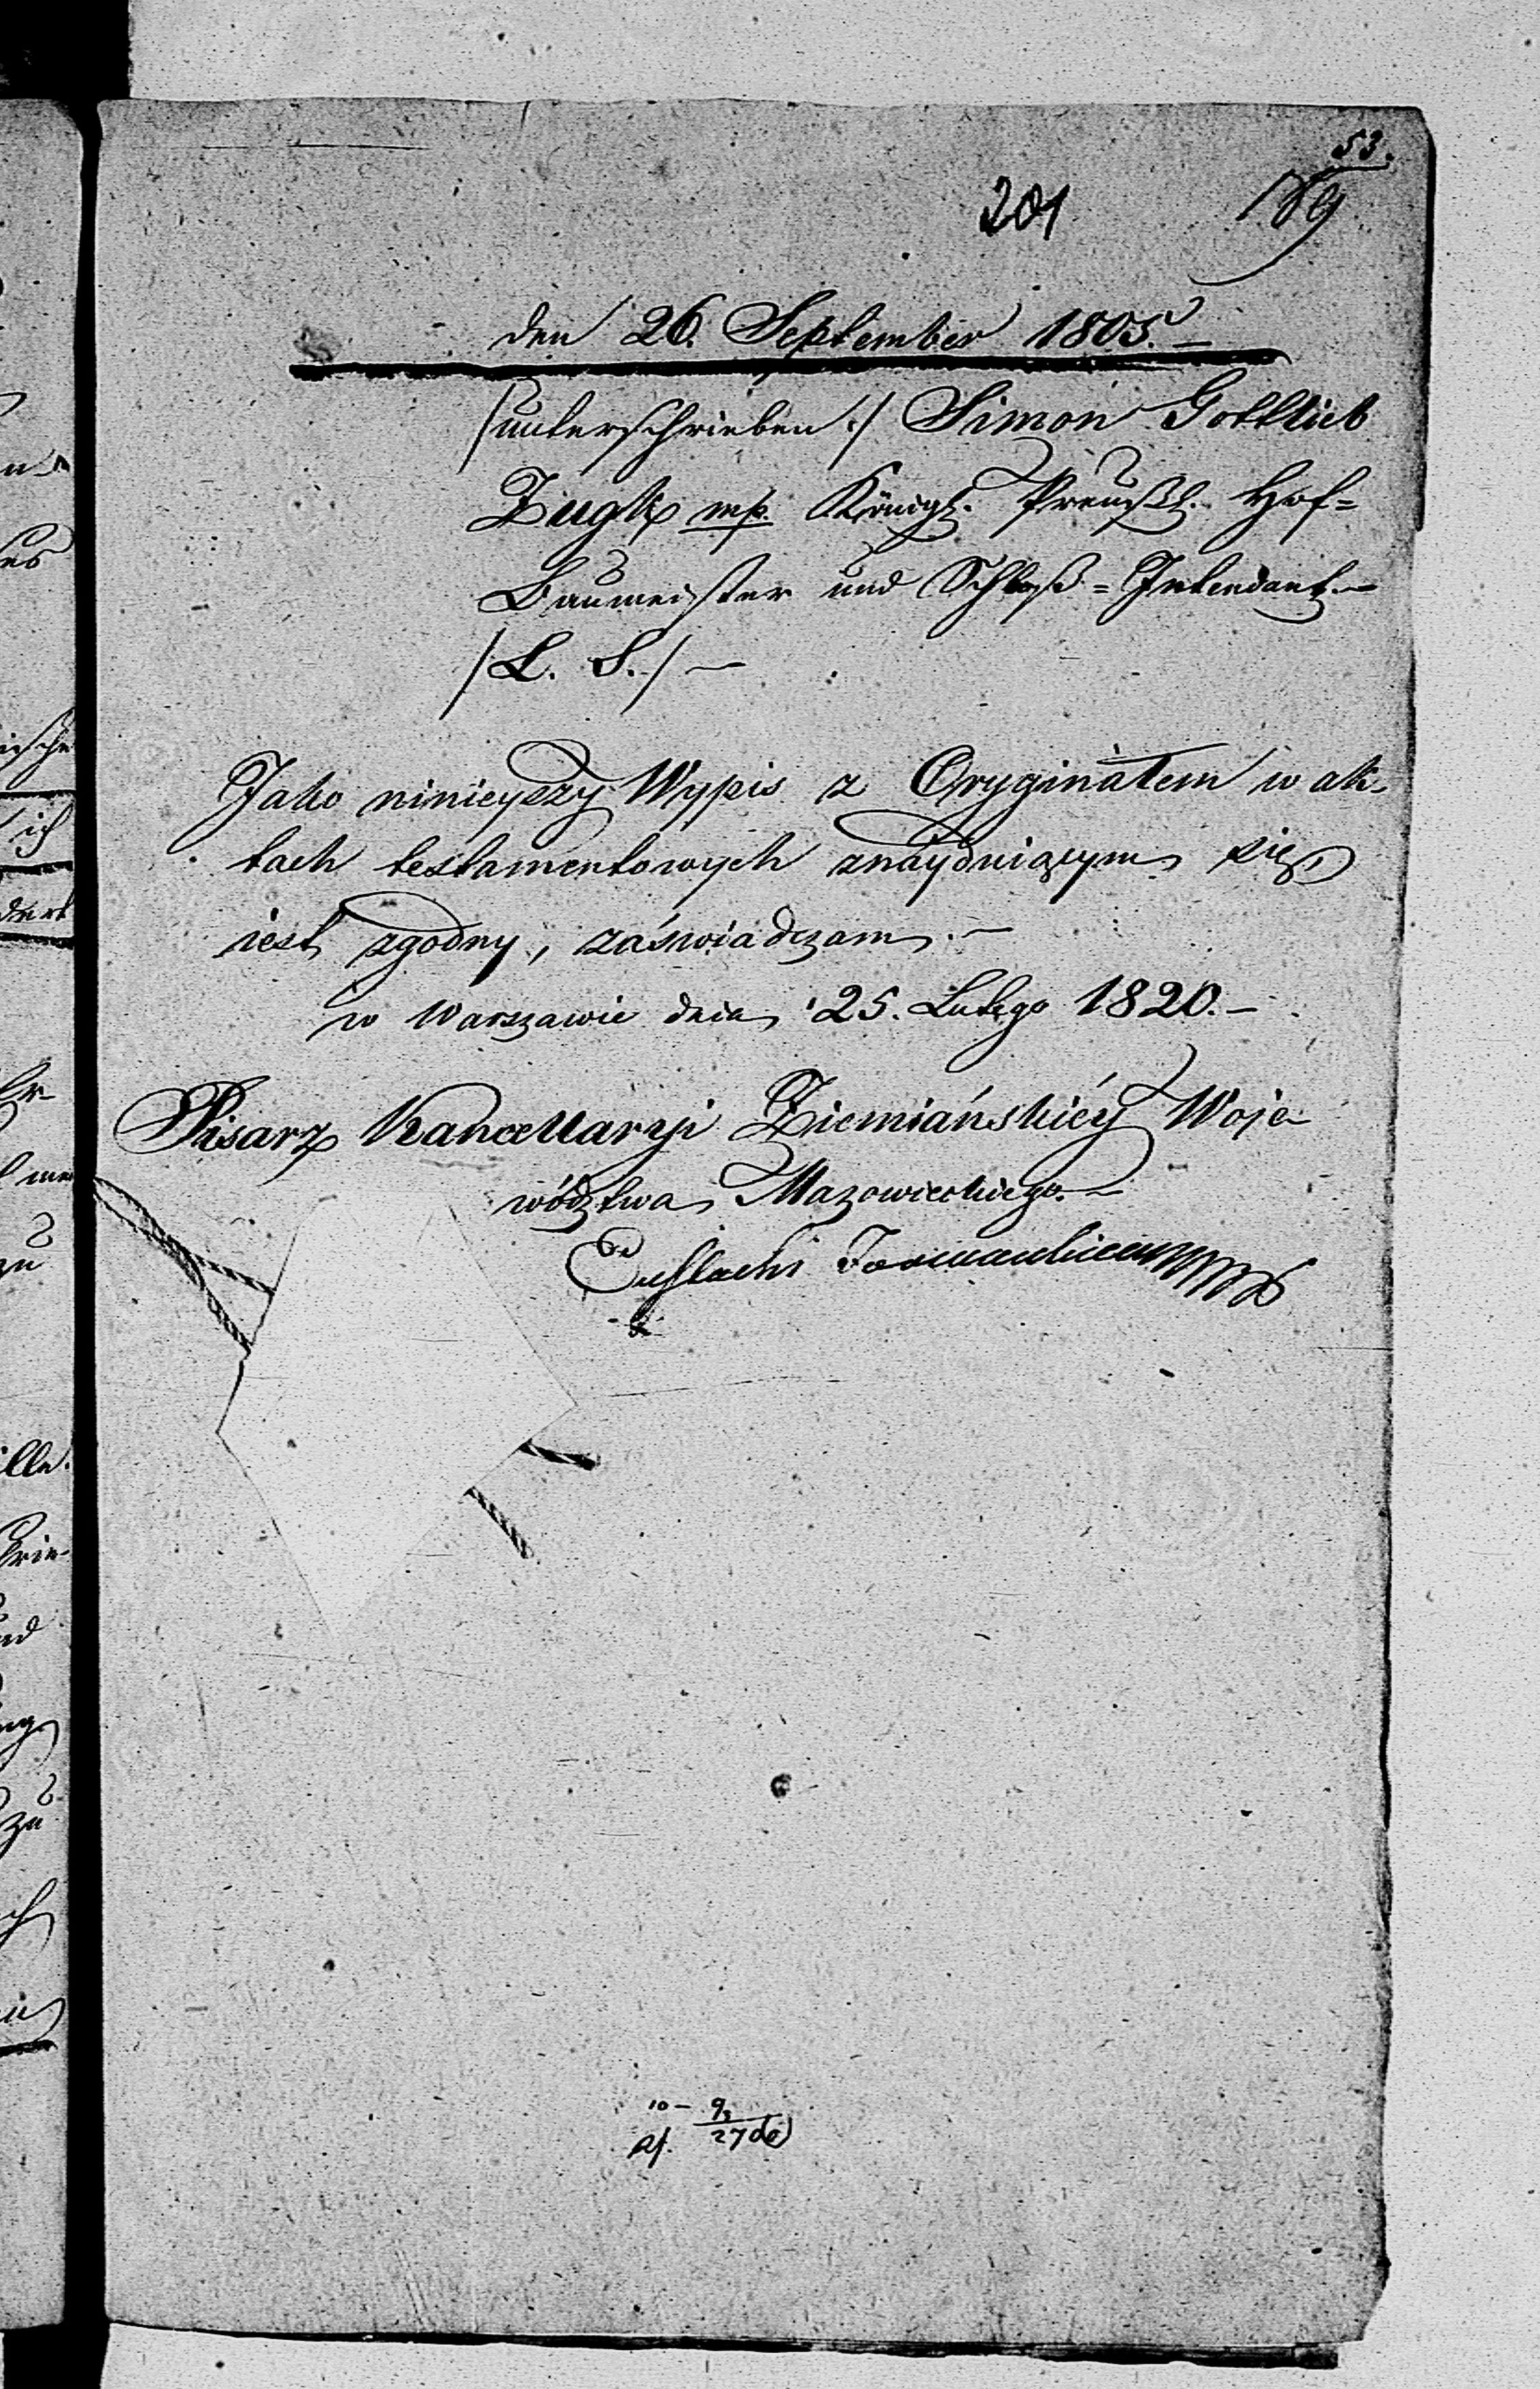 53.
201
189
den 26. September 1805. —
/unterschrieben:/ Simon Gottlieb
Zugk mp. Königl. Preußl. Hof=
Baumeister und Schloß=Intendant.—
/L. S./ —
Jako ninieyszy Wypis z Oryginałem w ak-
tach testamentowych znayduiącym się
iest zgodny, zaświadczam. —
w Warszawie dnia 25. Lutego 1820. —
Pisarz Kancellaryi Ziemiańskiéy Woje-
wództwa Mazowieckiego. —